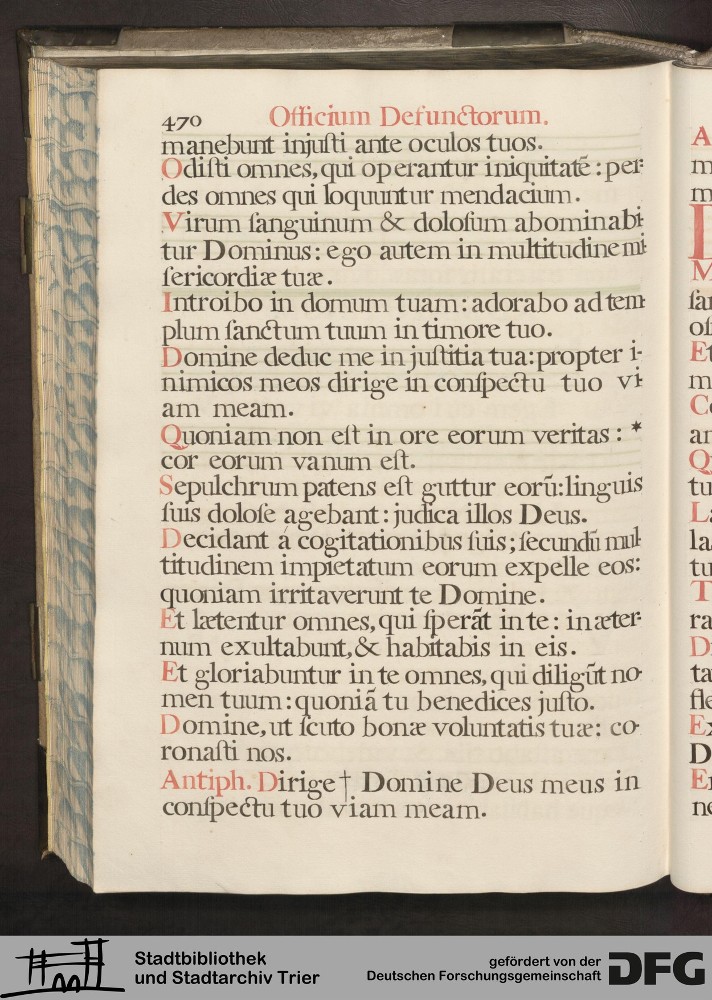 470 Officium Defunctorum.
manebunt injuſti ante oculos tuos.
Odiſti omnes, qui operantur iniquitatē : per-
des omnes qui loquuntur mendacium.
Virum ſanguinum & doloſum abominabi-
tur Dominus: ego autem in multitudine mi-
ſericordiæ tuæ.
Introibo in domum tuam: adorabo ad tem-
plum ſanctum tuum in timore tuo.
Domine deduc me in juſtitia tua: propter i-
nimicos meos dirige in conſpectu tuo vi-
am meam.
Quoniam non eſt in ore eorum veritas : *
cor eorum vanum eſt.
Sepulchrum patens eſt guttur eorū: linguis
ſuis doloſe agebant: judica illos Deus.
Decidant á cogitationibus ſuis; ſecundū mul-
titudinem impietatum eorum expelle eos:
quoniam irritaverunt te Domine.
Et lætentur omnes, qui ſperāt in te: in æter-
num exultabunt, & habitabis in eis.
Et gloriabuntur in te omnes, qui diligūt no-
men tuum: quoniā tu benedices juſto.
Domine, ut ſcuto bonæ voluntatis tuæ: co-
ronaſti nos.
Antiph. Dirige † Domine Deus meus in
conſpectu tuo viam meam.
A
m
m
D
M
ſan
oſ
Et
m
Co
an
Q
tu
La
la
tu
T
ra
D
ta
fle
Ex
D
Er
ne
Stadtbibliothek
und Stadtarchiv Trier
gefördert von der
Deutschen Forschungsgemeinschaft
DFG